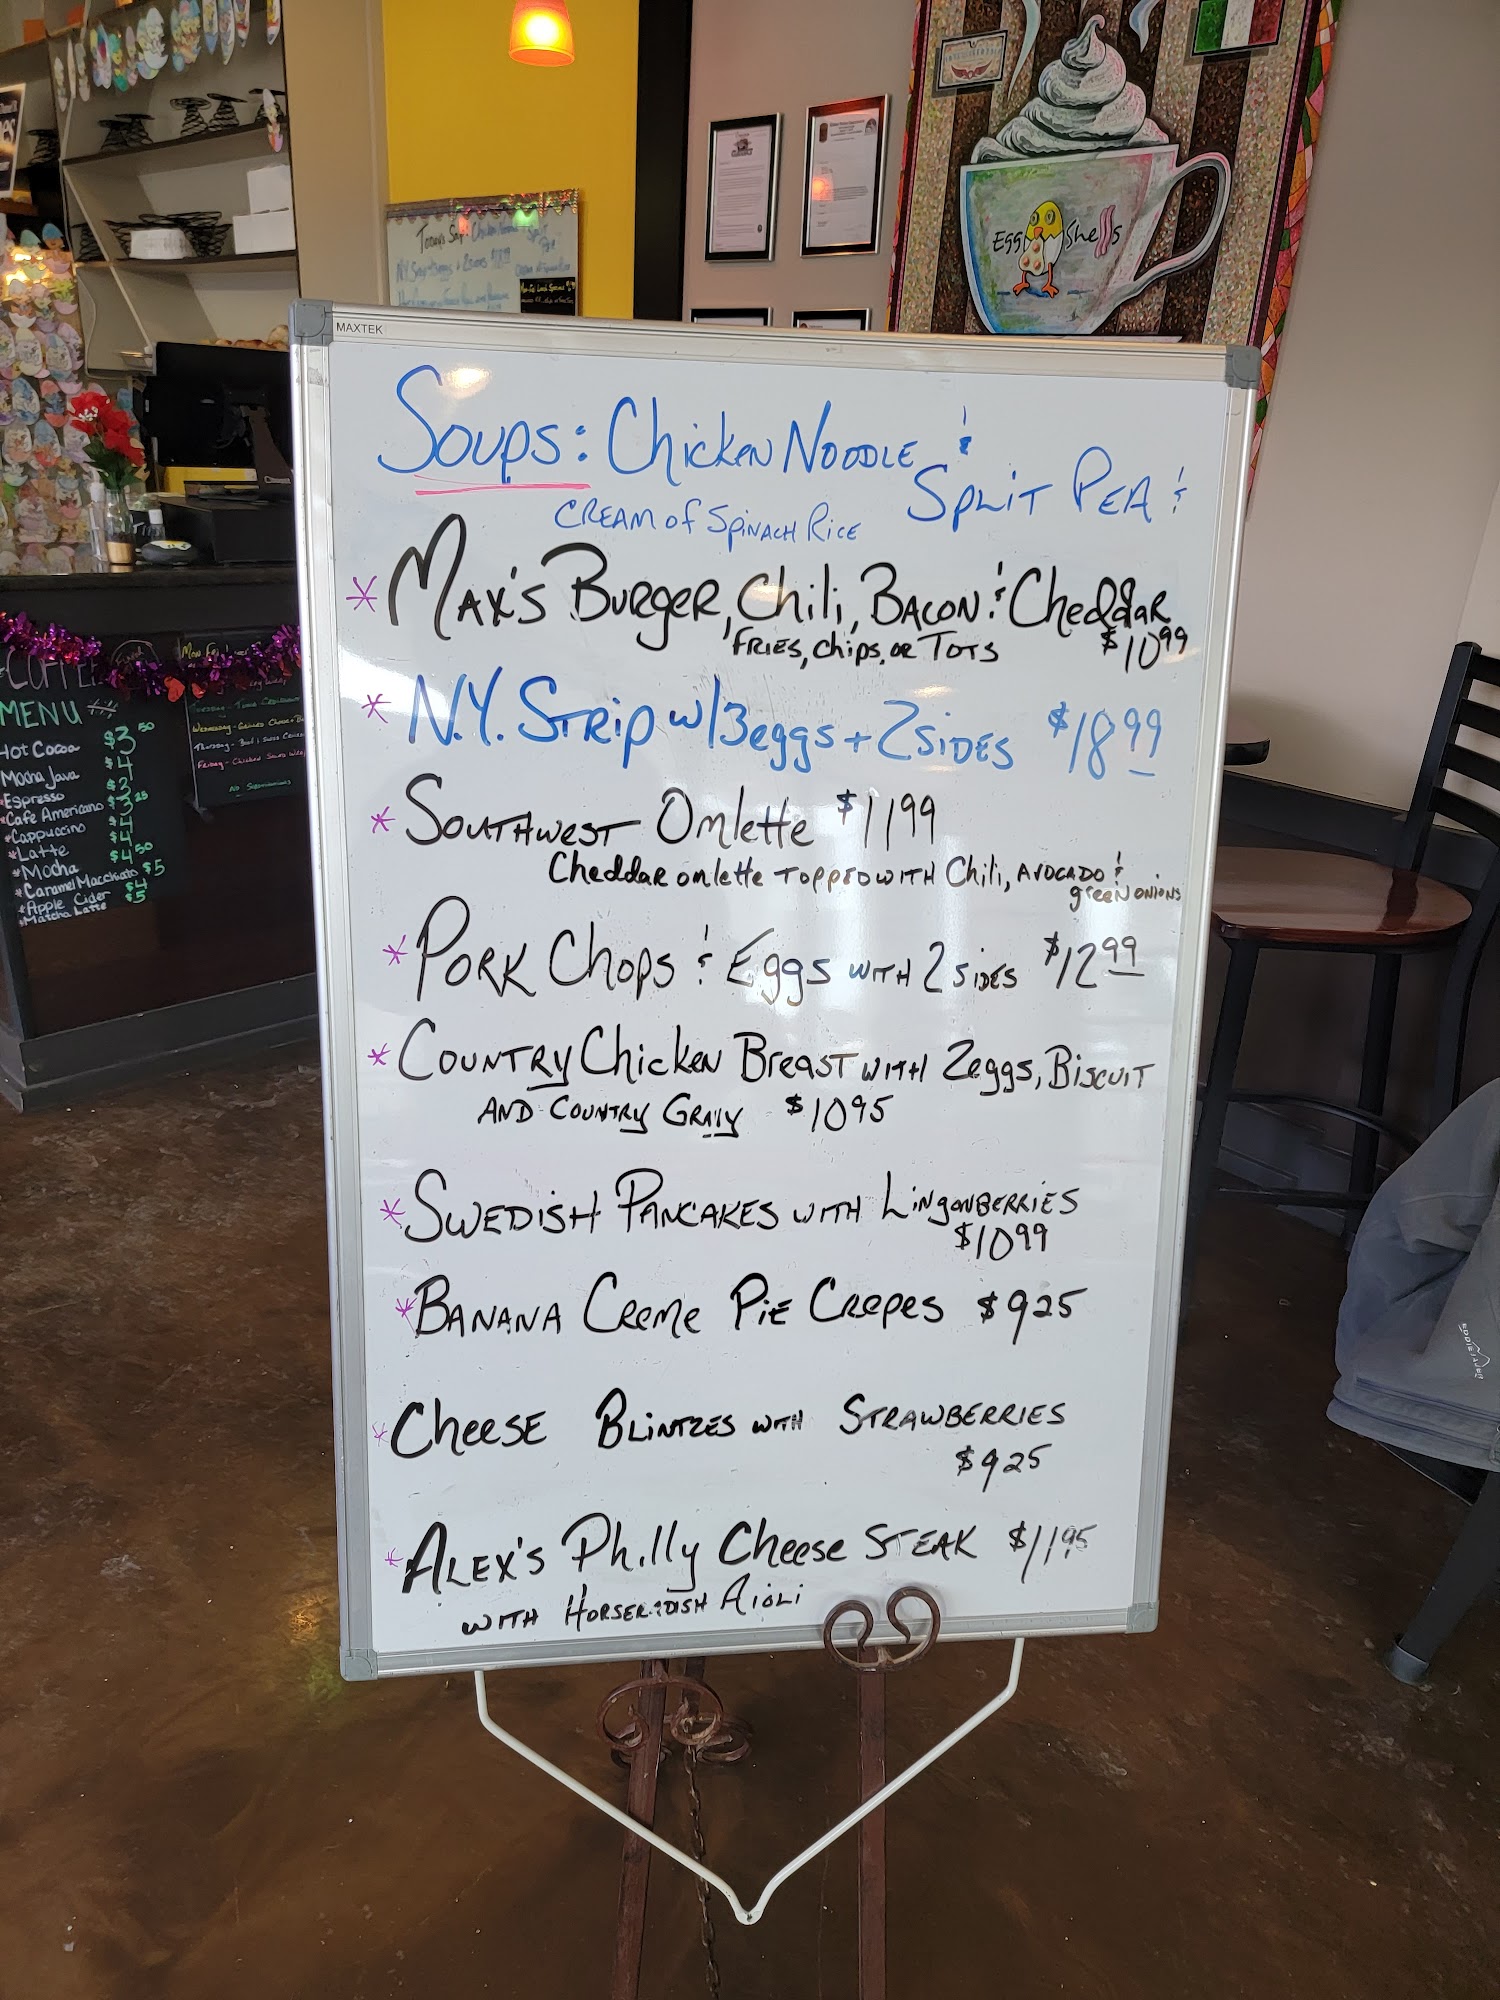 MAXTEK
SOUPS: Chicken NOODLE &
SPLIT PEA &
CREAM OF SPINACH RICE
* MAX'S BURGER, Chili, BACON & Cheddar
FRIES, Chips, OR TOTS $10 99
* N.Y. STRIP W/3 eggs + 2 SIDES $18 99
* SOUTHWEST Omlette $11 99
Cheddar omlette TOPPED WITH Chili, AVOCADO &
green ONIONS
* PORK Chops & Eggs WITH 2 SIDES $12 99
* COUNTRY Chicken Breast WITH 2 eggs, BISCUIT
AND COUNTRY GRAVY $10 95
* SWEDISH PANCAKES WITH LINgONBERRIES
$10 99
* BANANA Creme PIE CREPES $9 25
* CheeSE BLINTZES WITH STRAWBERRIES
$9 25
* ALEX'S Philly Cheese STEAK $11.95
WITH HORSERADISH AIOLI
Egg Shells
COFFEE
MENU
Hot Cocoa $3 50
Mocha Java $4
*Espresso $3
*Cafe Americano $3 25
*Cappuccino $4
*Latte $4
*Mocha $4 50
*Caramel Macchiato $5
*Apple Cider $4
*Matcha Latte $5
NO Substitutions
EDDIE BAUER